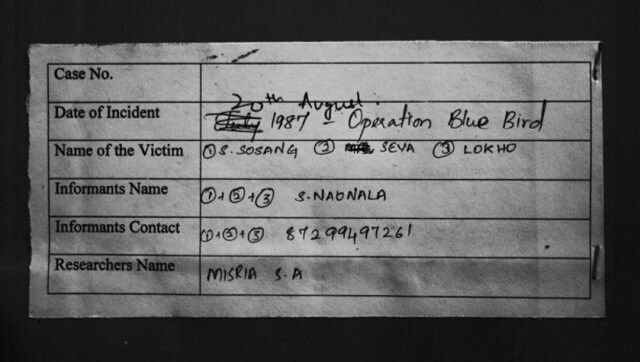 Case No.
20th August.
Date of Incident 1987 - Operation Blue Bird
Name of the Victim ① S. SOSANG ② SEVA ③ LOKHO
Informants Name ①+②+③ S. NAONALA
Informants Contact ①+②+③ 87299497261
Researchers Name MISRIA S.A